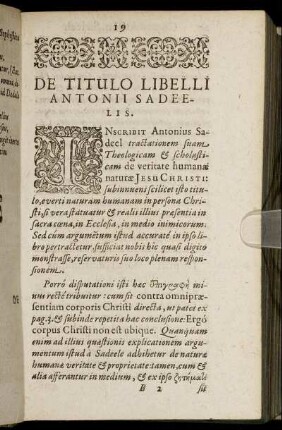 19
DE TITULO LIBELLI
ANTONII SADEE-
LIS.
INSCRIBIT Antonius Sa-
deel tractationem suam
Theologicam & scholasti-
cam de veritate humanæ
naturæ JESU CHRISTI:
subinnuens scilicet isto titu-
lo, everti naturam humanam in persona Chri-
sti, si vera statuatur & realis illius præsentia in
sacra cœna, in Ecclesia, in medio inimicorum.
Sed cùm argumẽtum istud accuratè in ipso li-
bro pertractetur, sufficiat nobis hîc quasi digito
monstrasse, reservaturis suo loco plenam respon-
sionem.
Porrò disputationi isti hæc ἐπιγραφὴ mi-
nus rectè tribuitur: cum sit contra omnipræ-
sentiam corporis Christi directa, ut patet ex
pag. 3. & subinde repetita hac conclusione: Ergò
corpus Christi non est ubique. Quanquam
enim ad illius quæstionis explicationem argu-
mentum istud à Sadeele adhibetur de naturæ
humanæ veritate & proprietate: tamen, cum &
alia afferantur in medium, & ex ipso ζητήματι
B 2
sit